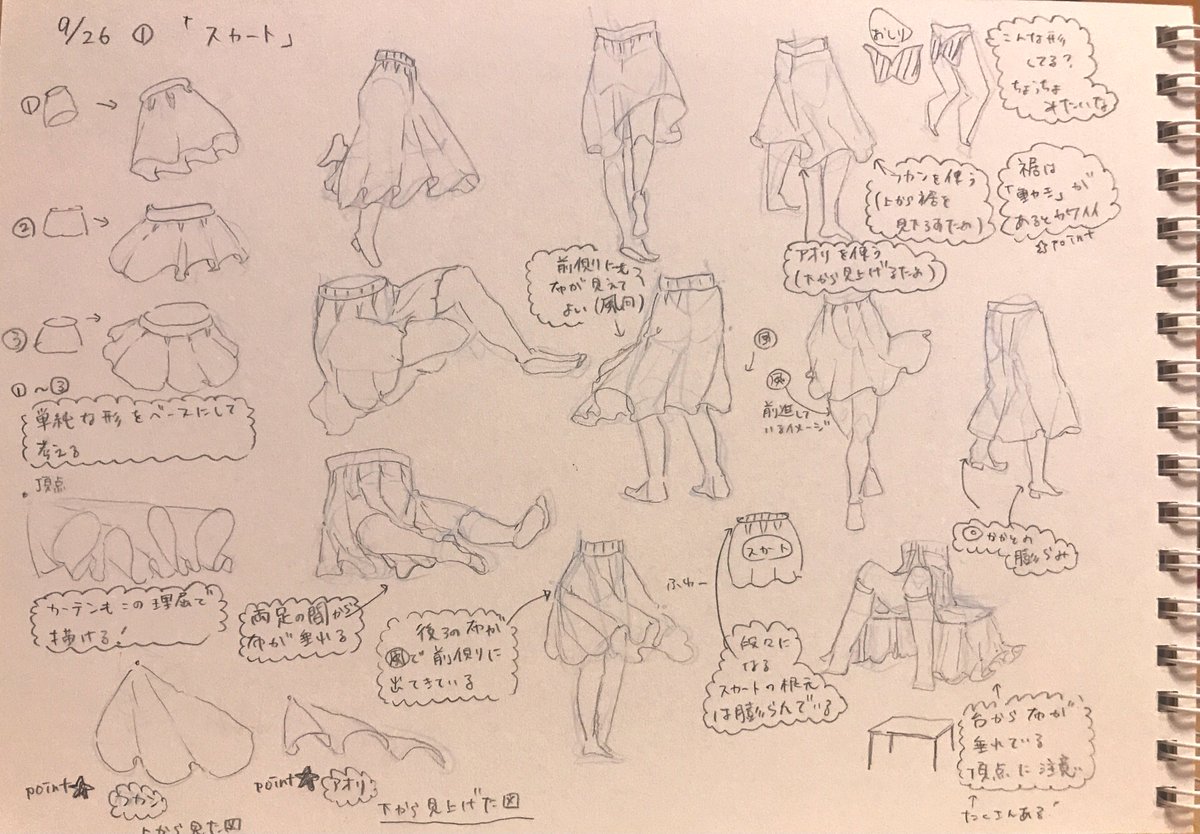 9/26 ① 「スカート」
①
②
③
①〜③
単純な形をベースにして
考える
頂点
カーテンもこの理屈で
描ける!
point★
フカン
上から見た図
point★
アオリ
下から見上げた図
両足の間から
布が垂れる
後ろの布が
風で前側に
出てきている
前側にも
布が見えて
よい(風向)
おしり
こんな形
してる?
ちょうちょ
みたいな
フカンを使う
(上から裾を
見てるため)
裾は
「動き」が
あるとカワイイ
point
アオリを使う
(下から見上げるため)
風
風
前進して
いるイメージ
かかとの
膨らみ
スカート
ふわー
段々に
なる
スカートの根元
は膨らんでいる
台から布が
垂れている
頂点に注意
たくさんある!